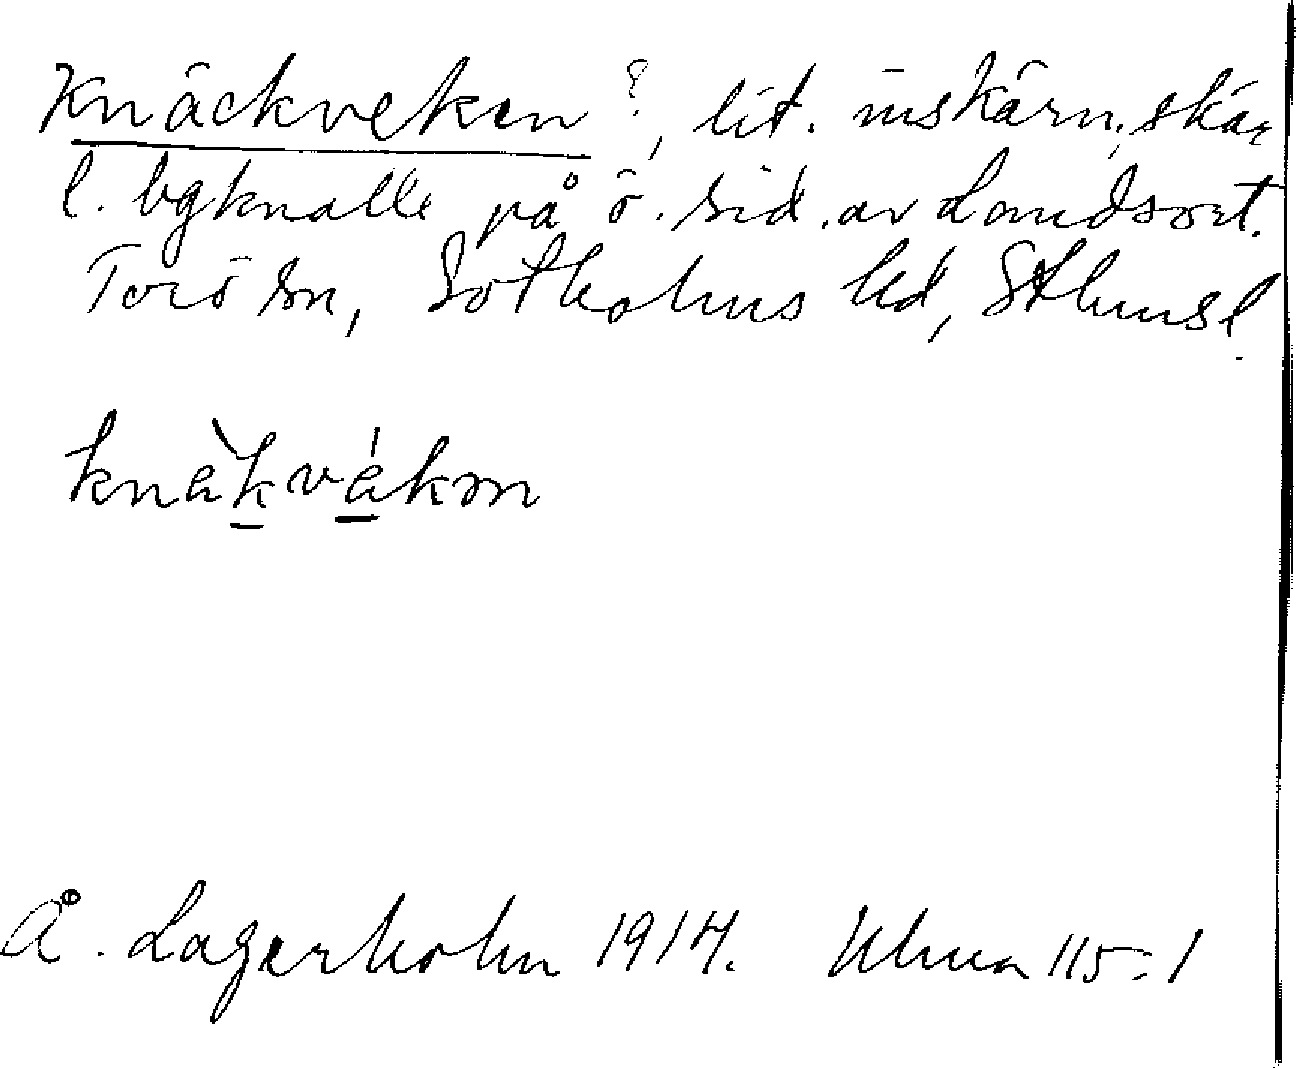 Knäckveken ?, lit. inskärn., skär
l. bgknalle på ö. sid. av Landsort.
Torö sn, Sotholms hd, Sthms l.
knäkväkən
Å. Lagerholm 1914. Ulma 115:1